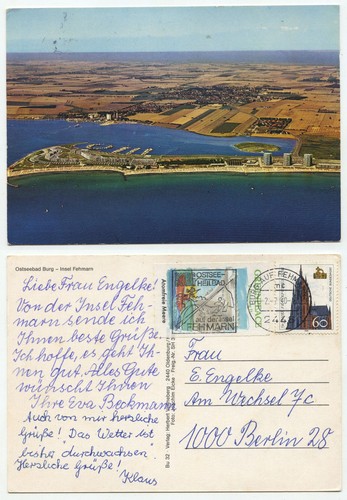 Ostseebad Burg – Insel Fehmarn
Liebe Frau Engelke!
Von der Insel Feh-
marn sende ich
Ihnen beste Grüße.
Ich hoffe, es geht Ih-
nen gut. Alles Gute
wünscht Ihnen
Ihre Eva Beckmann
Auch von mir herzliche
Grüße! Das Wetter ist
bisher durchwachsen.
Herzliche Grüße!
Klaus
Atomfreie Meere
OSTSEE-
HEILBAD
auf der Insel
FEHMARN
BURG AUF FEHMARN
2448
60
Frau
E. Engelke
Am Wechsel 7c
1000 Berlin 28